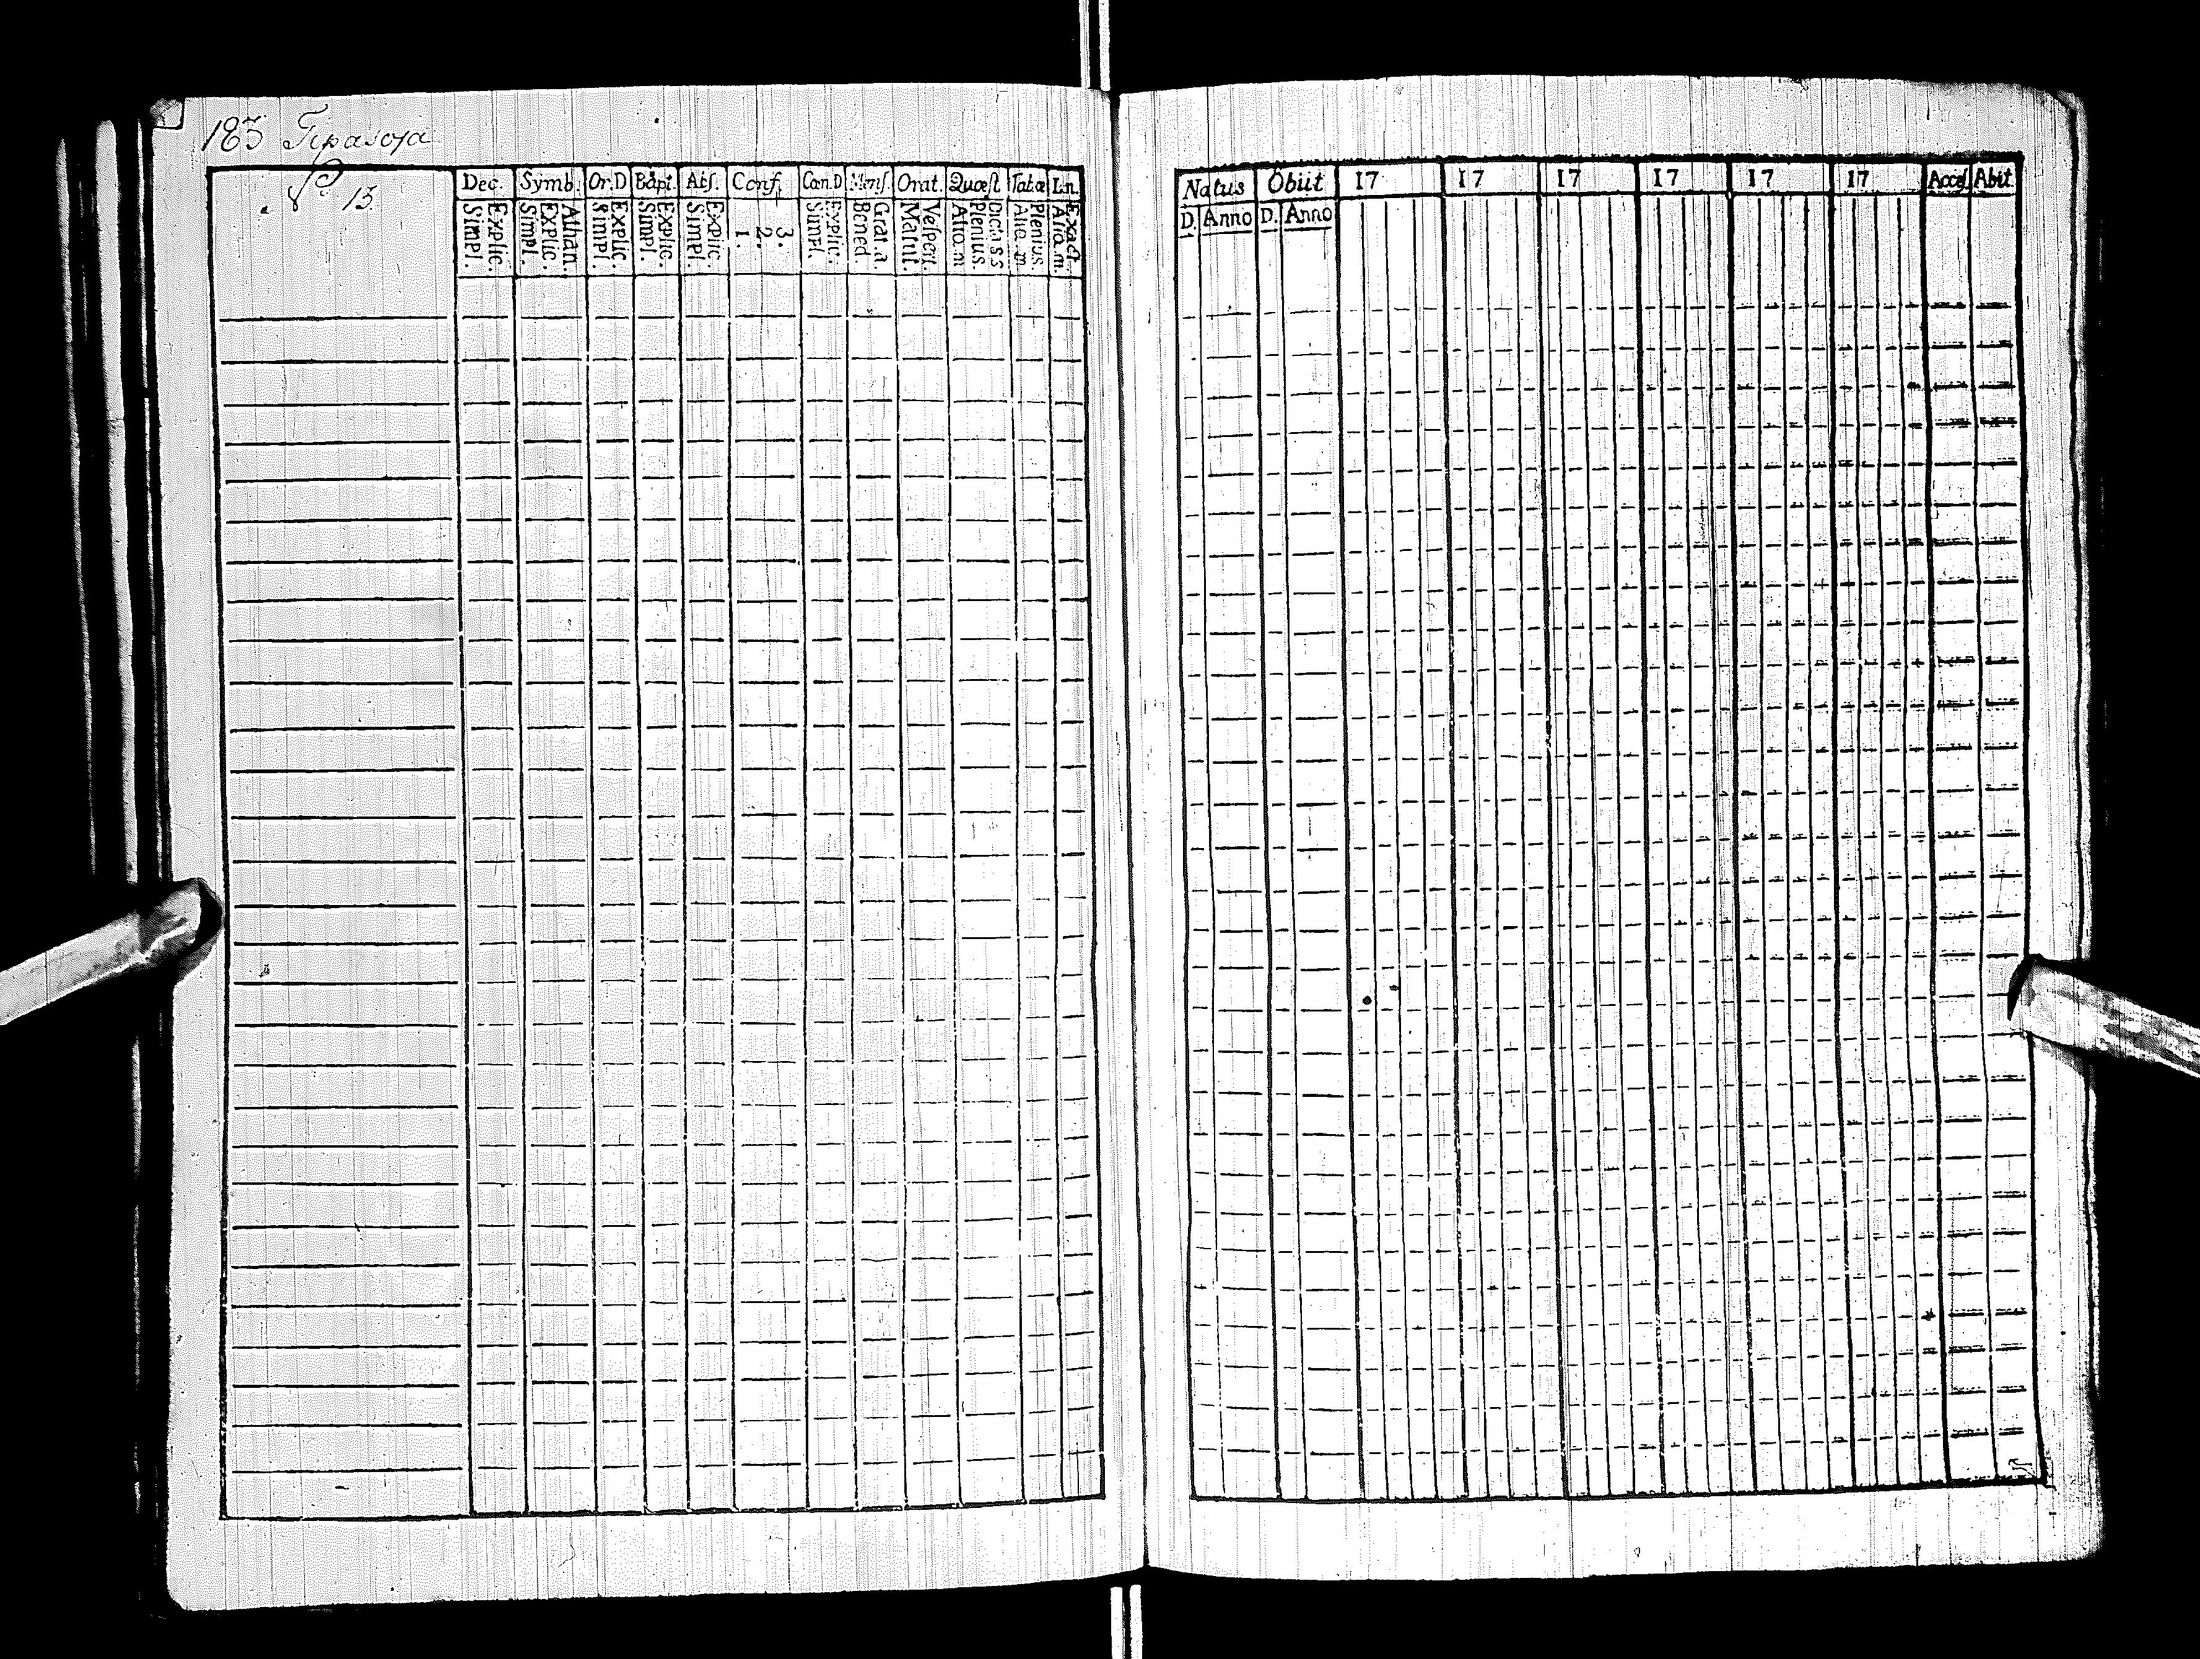 183 Tipasoja
№ 13
Dec. Symb. Or.D Bapt. Abſ. Conf. Cœn.D Menſ. Orat. Quæſt. Tab.œ L.n.
Simpl. Explic. Simpl. Explic. Athan. Simpl. Explic. Simpl. Explic. Simpl. Explic. 1. 2. 3. Simpl. Explic. Bened. Grat.a. Matut. Veſpert. Alio.m Plenius. Dicta s s Alio.m Plenius. Alio.m. Exact.
Natus Obiit 17 17 17 17 17 17 Acceſ. Abiit
D. Anno D. Anno